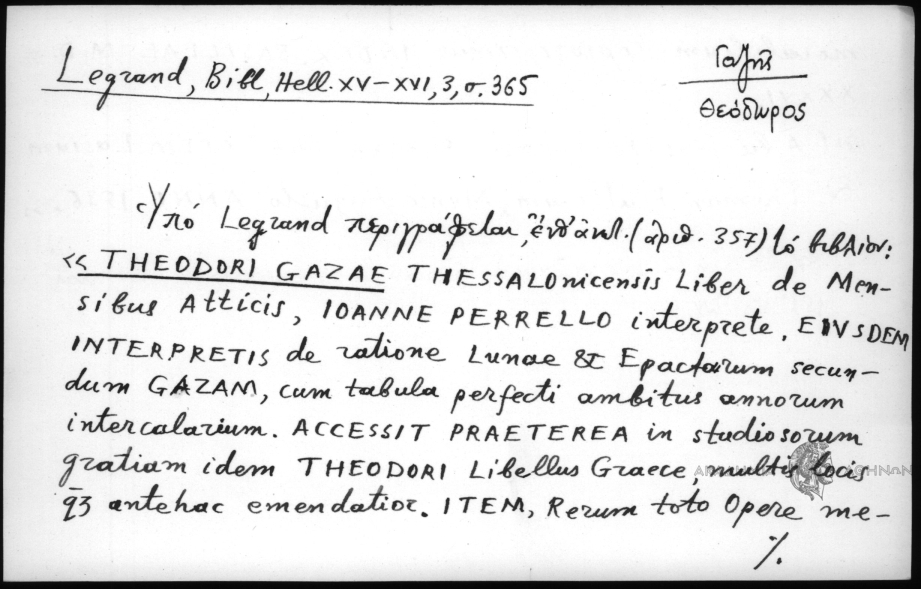 Legrand, Bibl, Hell. XV-XVI, 3, σ. 365
Γαζής
Θεόδωρος
Ὑπό Legrand περιγράφεται, ἔνθ' ἀνωτ. (ἀριθ. 357) τό βιβλίον:
<< THEODORI GAZAE THESSALOnicensis Liber de Men-
sibus Atticis, IOANNE PERRELLO interprete. EIVSDEM
INTERPRETIS de ratione Lunae & Epactarum secun-
dum GAZAM, cum tabula perfecti ambitus annorum
intercalarium. ACCESSIT PRAETEREA in studiosorum
gratiam idem THEODORI Libellus Graece, multis locis
q3 antehac emendatior. ITEM, Rerum toto Opere me-
%.